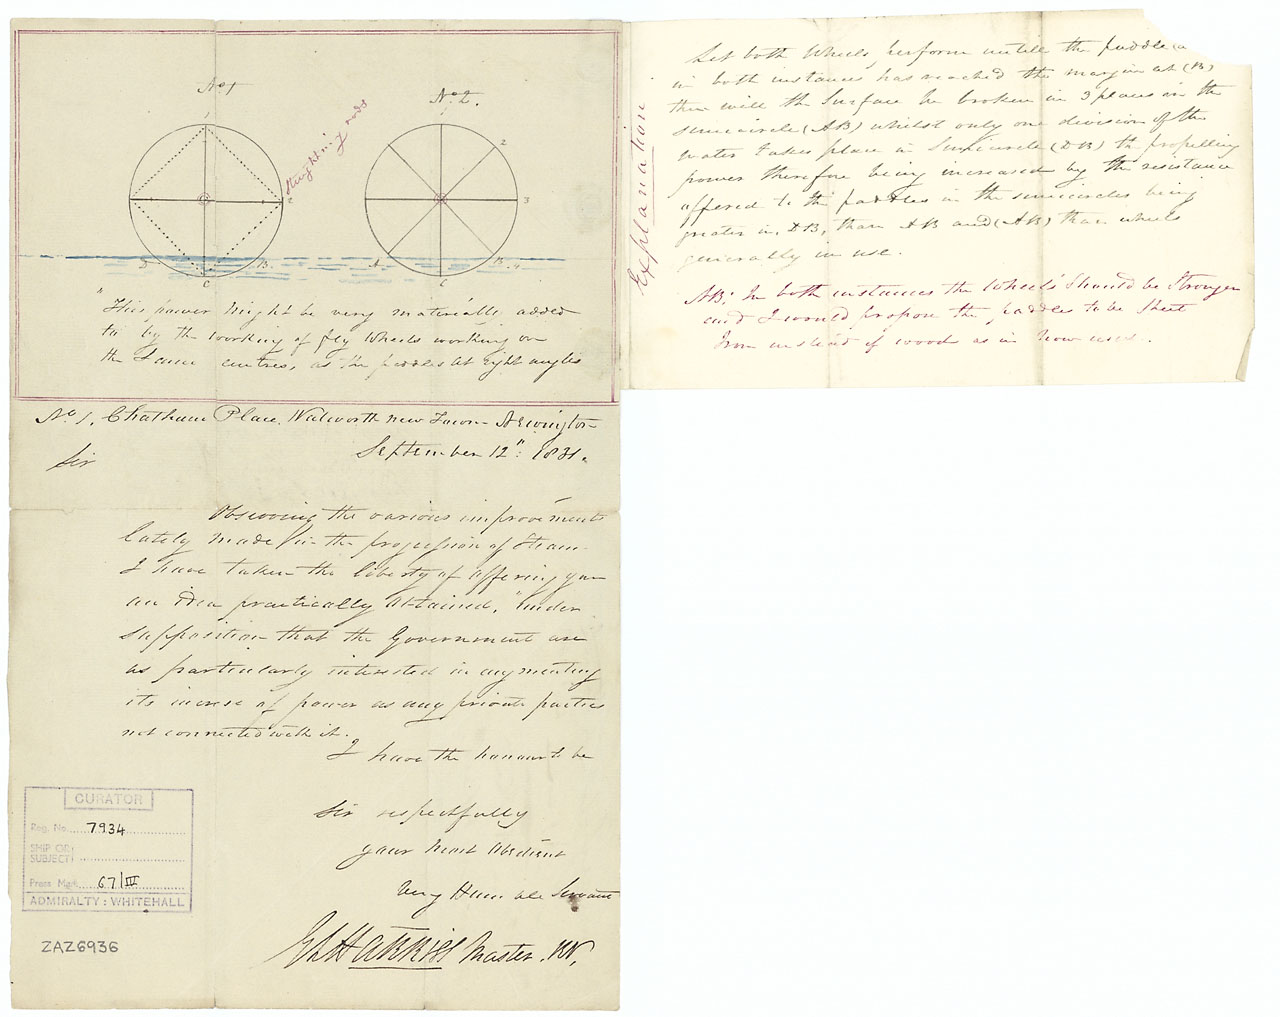 No 1
No 2.
1
2
1
2
3
4
D
B
C
A
B
C
strengthning rods
"This power might be very materially added
to by the working of fly Wheels working on
the Same centres, as the paddles at right angles
No. 1, Chatham Place, Walworth New Town Newington
September 12th: 1831.
Sir
Observing the various improvements
lately made in the propulsion of Steam
I have taken the liberty of offering you
an idea practically obtained, "under
supposition that the Government are
as particularly interested in augmenting
its increse of power as any private parties
not connected with it.
I have the honour to be
Sir respectfully
your most Obedient
Very Humble Servant
Harris Master. RN,
CURATOR
Reg. No. 7934
SHIP OR
SUBJECT
Press Mark 67/III
ADMIRALTY: WHITEHALL
ZAZ6936
Explanation
Let both Wheels perform untill the paddle
in both instances has reached the margin at (B)
then will the Surface be broken in 3 places in the
semicircle (AB) whilst only one division of the
water takes place in Semicircle (DB) the propelling
power therefore being increased by the resistance
offered to the paddles in the semicircles being
greater in DB, than AB and (AB) than wheels
generally in use.
NB; In both instances the Wheels Should be Stronger
and I would propose the paddles to be Sheet
Iron instead of wood as in now used.